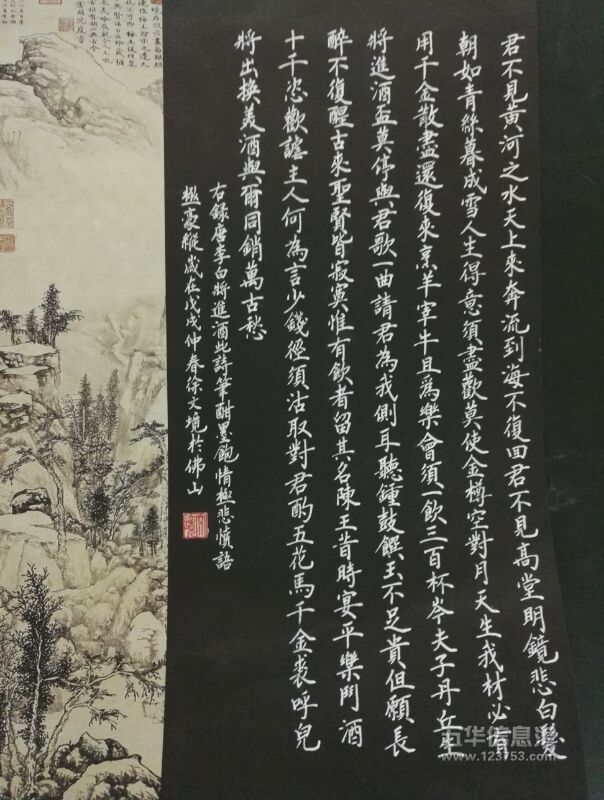 君不見黃河之水天上來奔流到海不復回君不見高堂明鏡悲白髮
朝如青絲暮成雪人生得意須盡歡莫使金樽空對月天生我材必有
用千金散盡還復來烹羊宰牛且爲樂會須一飲三百杯岑夫子丹丘生
將進酒盃莫停與君歌一曲請君為我側耳聽鍾鼓饌玉不足貴但願長
醉不復醒古來聖賢皆寂寞惟有飲者留其名陳王昔時宴平樂鬥酒
十千恣歡謔主人何為言少錢徑須沽取對君酌五花馬千金裘呼兒
將出換美酒與爾同銷萬古愁
右錄唐李白將進酒此詩筆酣墨飽情極悲憤語
極豪縱歲在戊戌仲春徐文境於佛山
五华信息港
www.123753.com